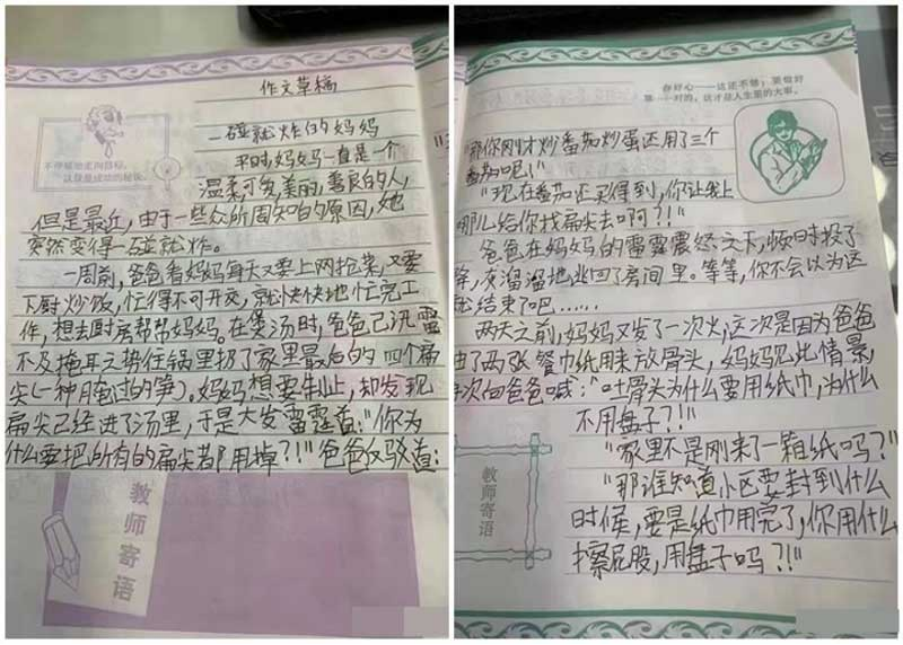 作文草稿
一碰就炸的妈妈
平时妈妈一直是一个
温柔可爱,美丽,善良的人,
但是最近,由于一些众所周知的原因,她
突然变得一碰就炸。
一周前,爸爸看妈妈每天又要上网抢菜,又要
下厨炒饭,忙得不可开交,就快快地忙完工
作,想去厨房帮帮妈妈。在煲汤时,爸爸已汛雷
不及掩耳之势往锅里扔了家里最后的四个扁
尖(一种腌过的笋)。妈妈想要制止,却发现
扁尖已经进了汤里,于是大发雷霆道:"你为
什么要把所有的扁尖都用掉?!"爸爸反驳道:
教师寄语
你好心——这还不够;要做好
第一对的,这才是人生里的大事。
那你刚才炒番茄炒蛋还用了三个
番茄呢!"
"现在番茄还买得到,你让我上
哪儿给你找扁尖去啊?!"
爸爸在妈妈的雷霆震怒之下,顿时投了
降,灰溜溜地逃回了房间里。等等,你不会以为这
就结束了吧……
两天之前,妈妈又发了一次火,这次是因为爸爸
了两张餐巾纸用来放骨头,妈妈见此情景,
次向爸爸喊:"吐骨头为什么要用纸巾,为什么
不用盘子?!"
"家里不是刚来了一箱纸吗?"
"那谁知道小区要封到什么
时候,要是纸巾用完了,你用什么
擦屁股,用盘子吗?!"
教师寄语